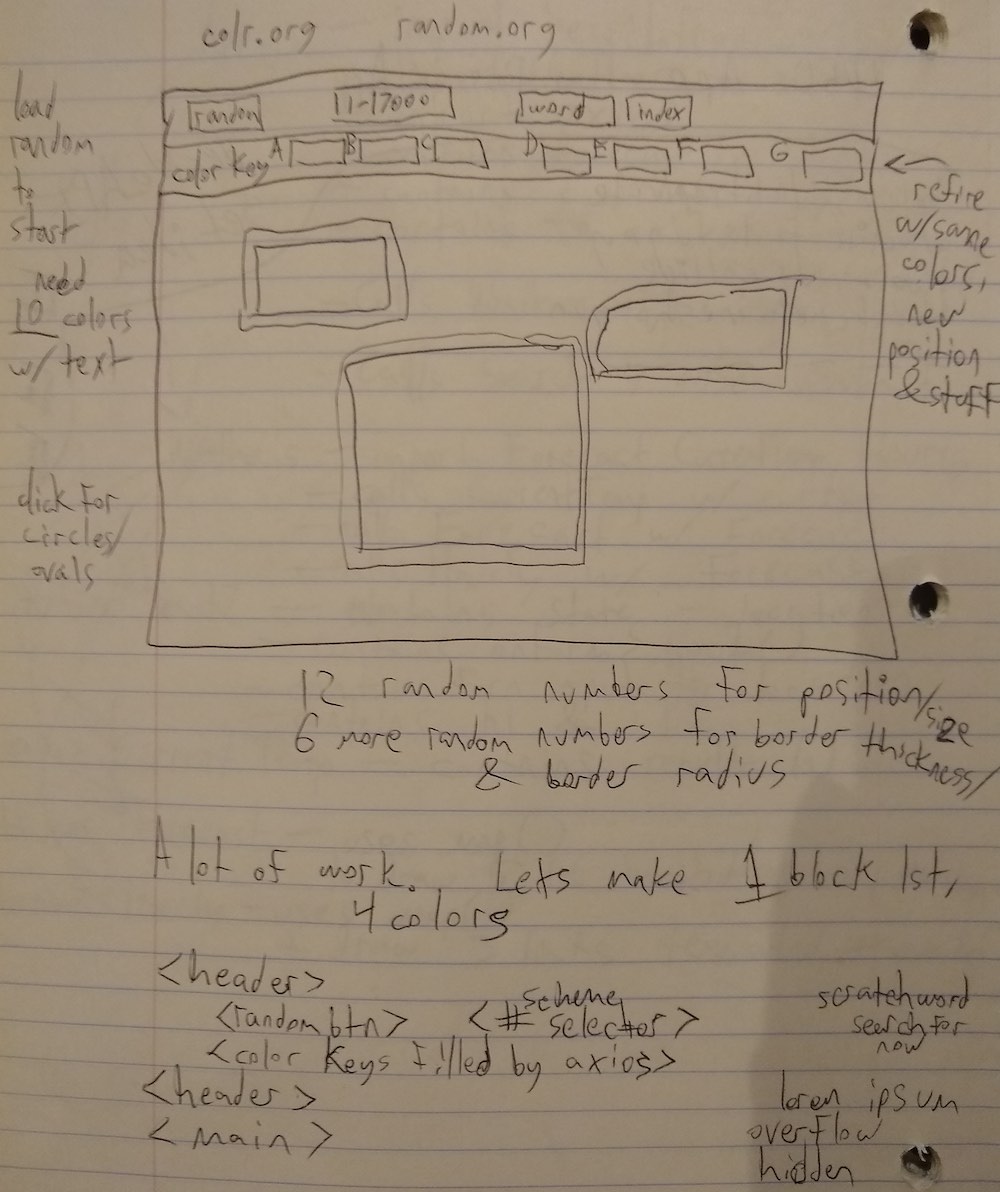 colr.org random.org
load
random
to
start
need
10 colors
w/text
click for
circles/
ovals
random 11-17000 word index
color key A B C D E F G
← refire
w/same
colors,
new
position
& stuff
12 random numbers for position/size
6 more random numbers for border thickness/
& border radius
A lot of work. Lets make 1 block 1st,
4 colors
<header>
<random btn> <# scheme selector>
<color keys filled by axios>
<header>
<main>
scratch word
search for
now
lorem ipsum
overflow
hidden